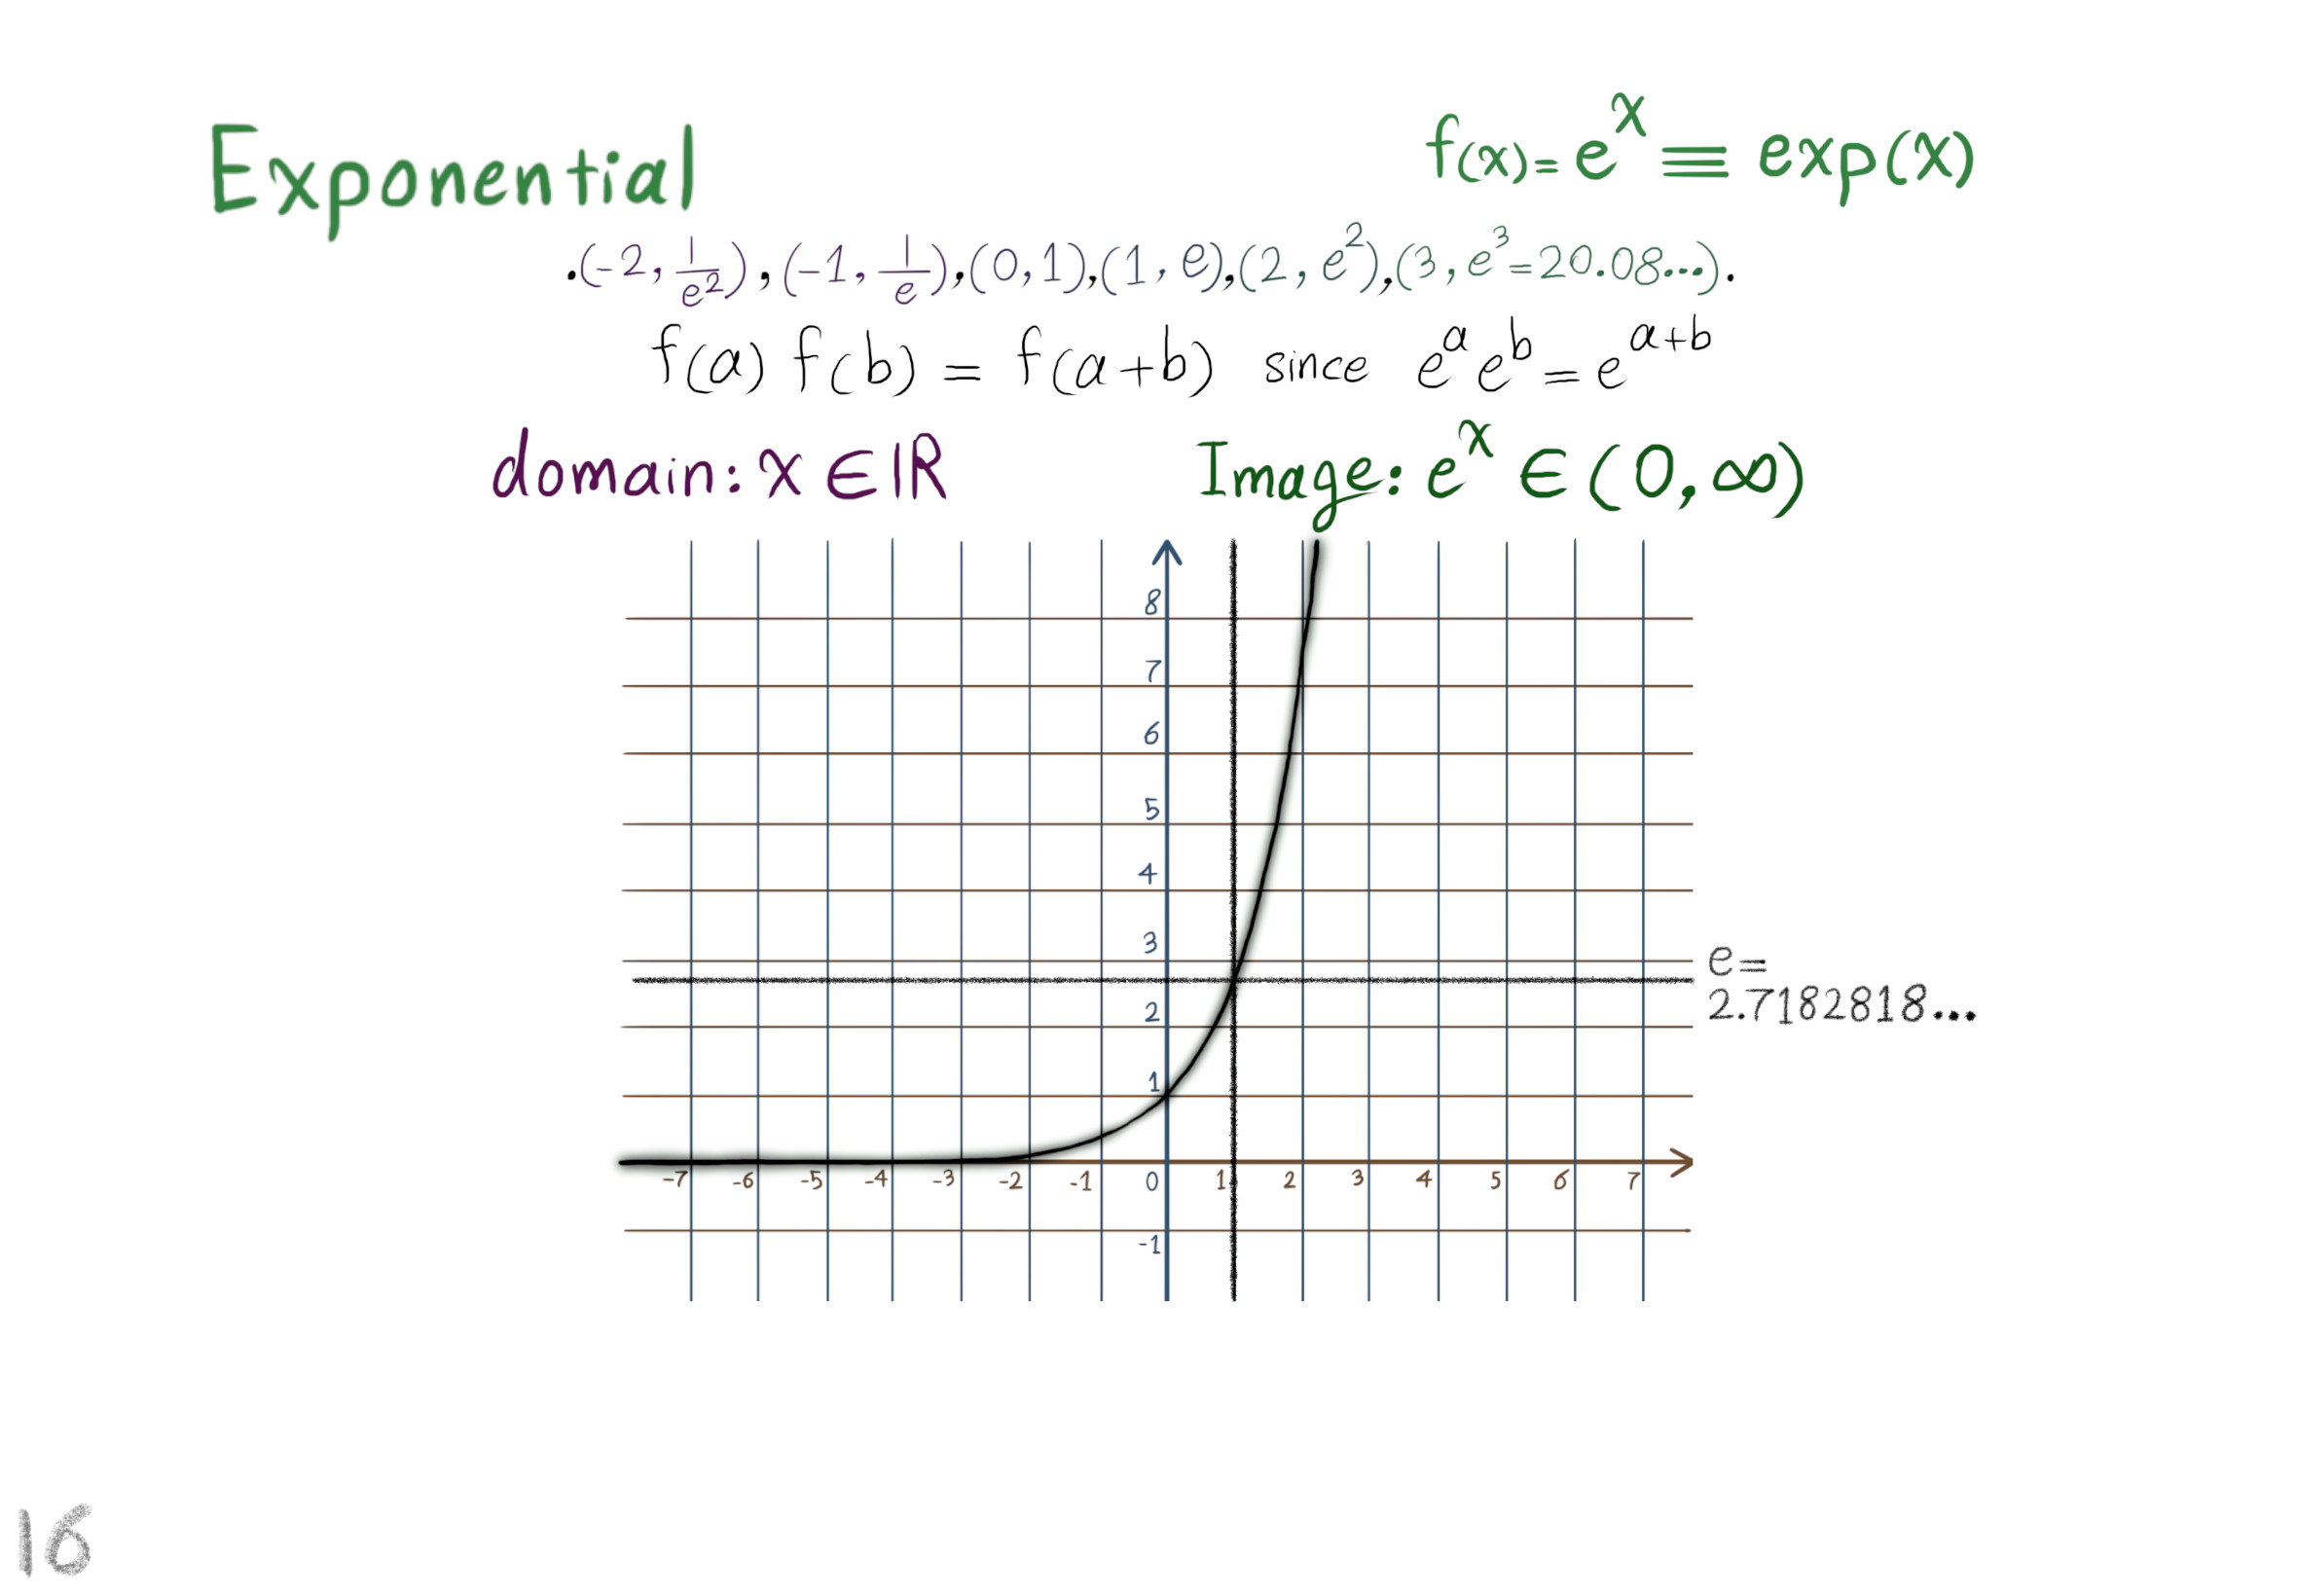 Exponential
f(x)= e^x ≡ exp(x)
.(-2, 1/e^2), (-1, 1/e), (0,1), (1, e), (2, e^2), (3, e^3=20.08...).
f(a) f(b) = f(a+b) since e^a e^b = e^{a+b}
domain: x ∈ ℝ
Image: e^x ∈ (0, ∞)
8
7
6
5
4
3
e=
2.7182818...
2
1
-7 -6 -5 -4 -3 -2 -1 0 1 2 3 4 5 6 7
-1
16